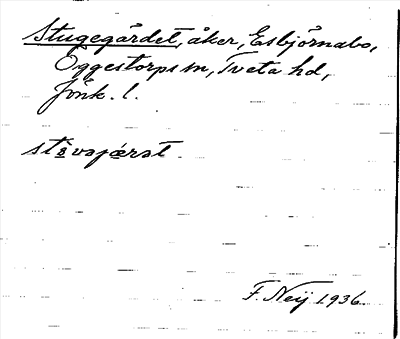 Stugegärdet, åker, Esbjörnabo,
Öggestorps sn, Tveta hd,
Jönk. l.
F. Neij 1936